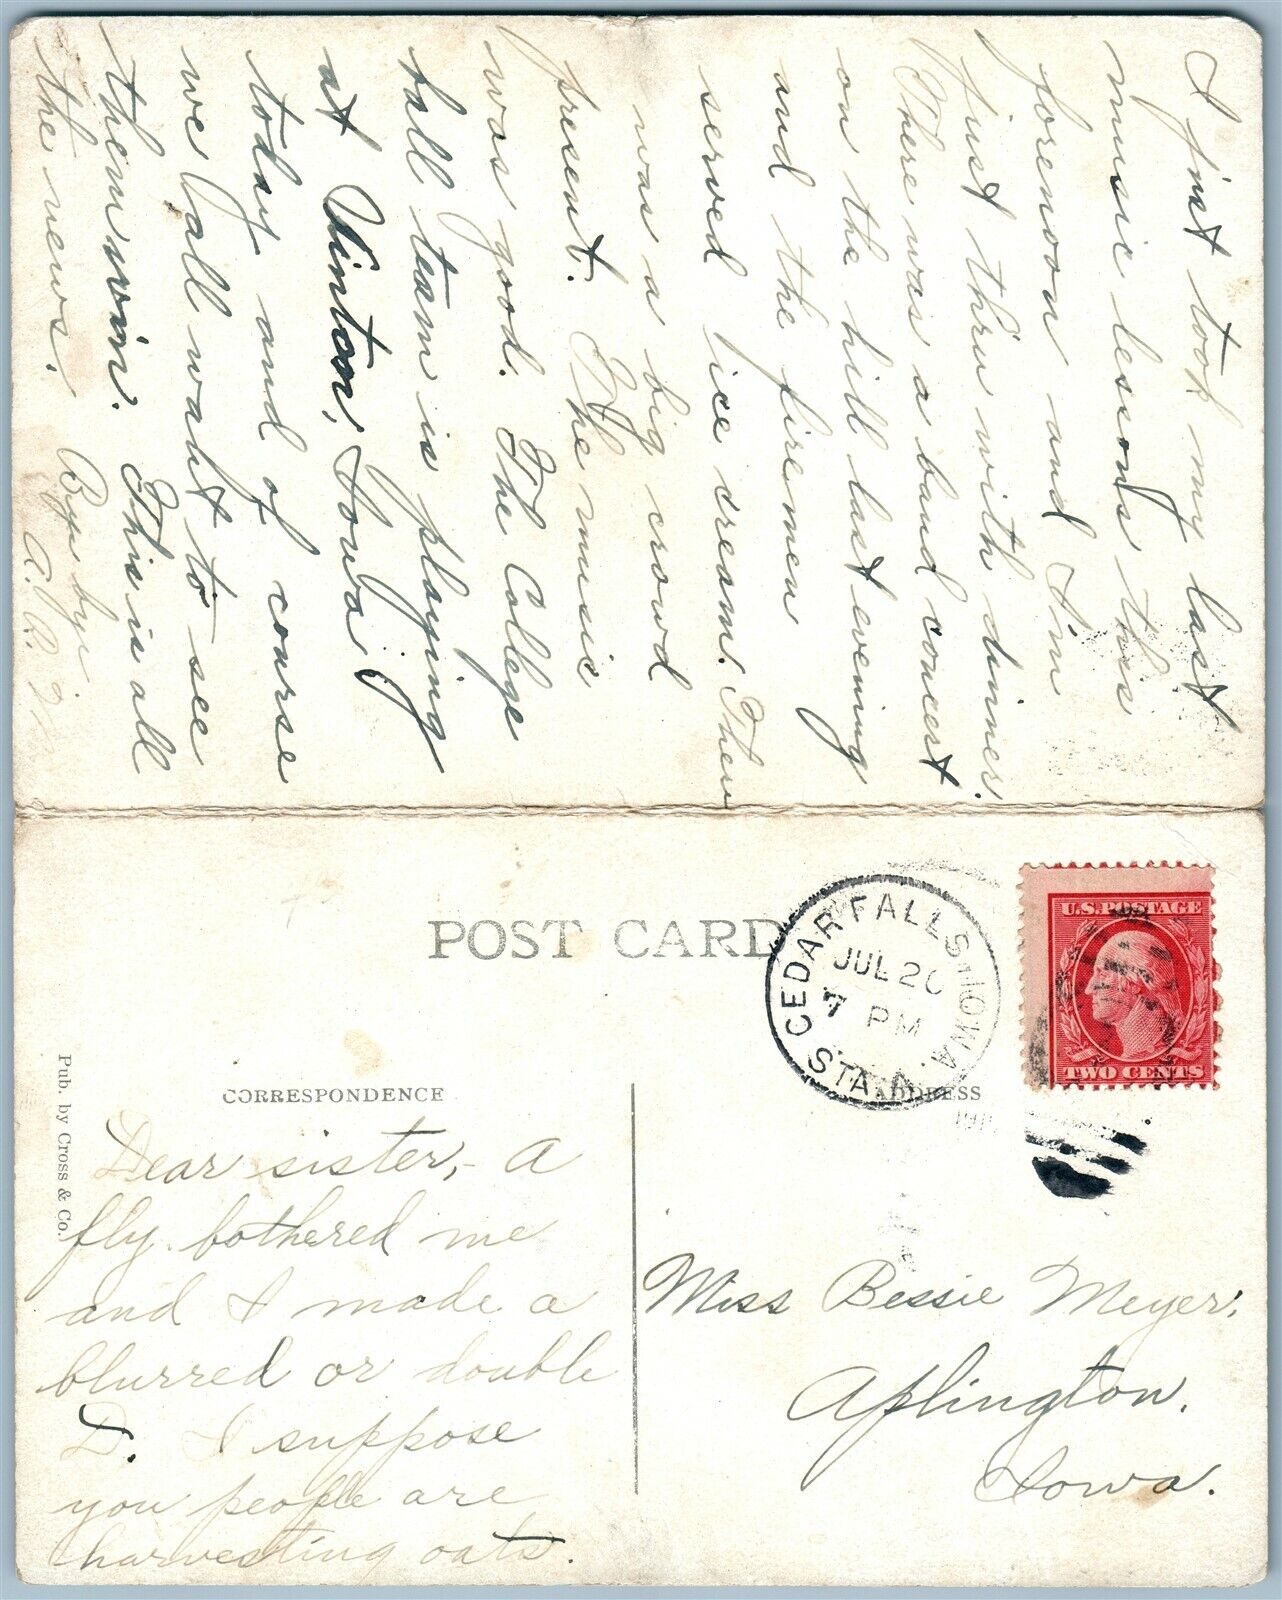 POST CARD
CEDAR FALLS IOWA
JUL 20
7 PM
STA. A.
U.S. POSTAGE
TWO CENTS
CORRESPONDENCE
ADDRESS
Pub. by Cross & Co.
Dear sister,- A
fly bothered me
and I made a
blurred or double
D. I suppose
you people are
harvesting oats.
Miss Bessie Meyer,
Aplington,
Iowa.
I just took my last
music lesons this
forenoon and I'm
just thru with dinner.
There was a band concert
on the hill last evening
and the firemen
served ice cream. There
was a big crowd
present. The music
was good. The College
ball team is playing
at Vinton, Iowa
today and of course
we all want to see
them win. This is all
the news. Bye bye
A. R. M.